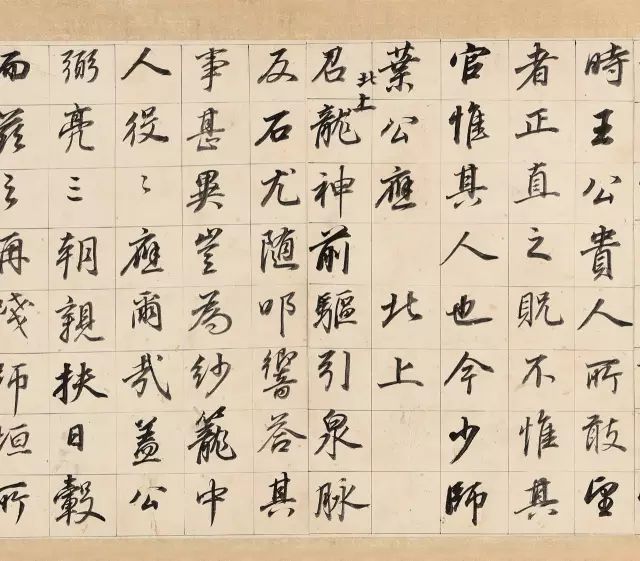 時王公貴人所敢望
者正直之貺不惟其
官惟其人也今少師
葉公應北上
北上
召龍神前驅引泉脉
反石尤随叩響答其
事甚異豈為紗籠中
人役〻應爾哉蓋公
弼亮三朝親扶日轂
而茲之再
師垣所